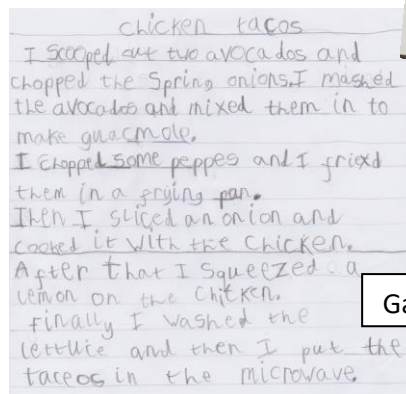 chicken tacos
I scooped out two avocados and
chopped the Spring onions. I mashed
the avocados and mixed them in to
make guacmole.
I chopped some peppes and I friexd
them in a frying pan.
Then I sliced an onion and
cooked it with the chicken.
After that I squeezed a
lemon on the chicken.
Finally I washed the
Ga
lettuce and then I put the
taceos in the microwave.